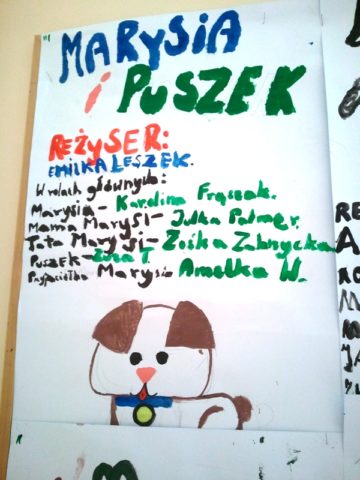 MARYSIA
i PUSZEK
REŻYSER:
EMILKA LESZEK.
W rolach głównych:
Marysia - Karolina Frączak.
Mama Marysi - Julka Palmer.
Tata Marysi - Zośka
Puszek - Zuza T.
Przyjaciółka Marysi Amelka W.
RE